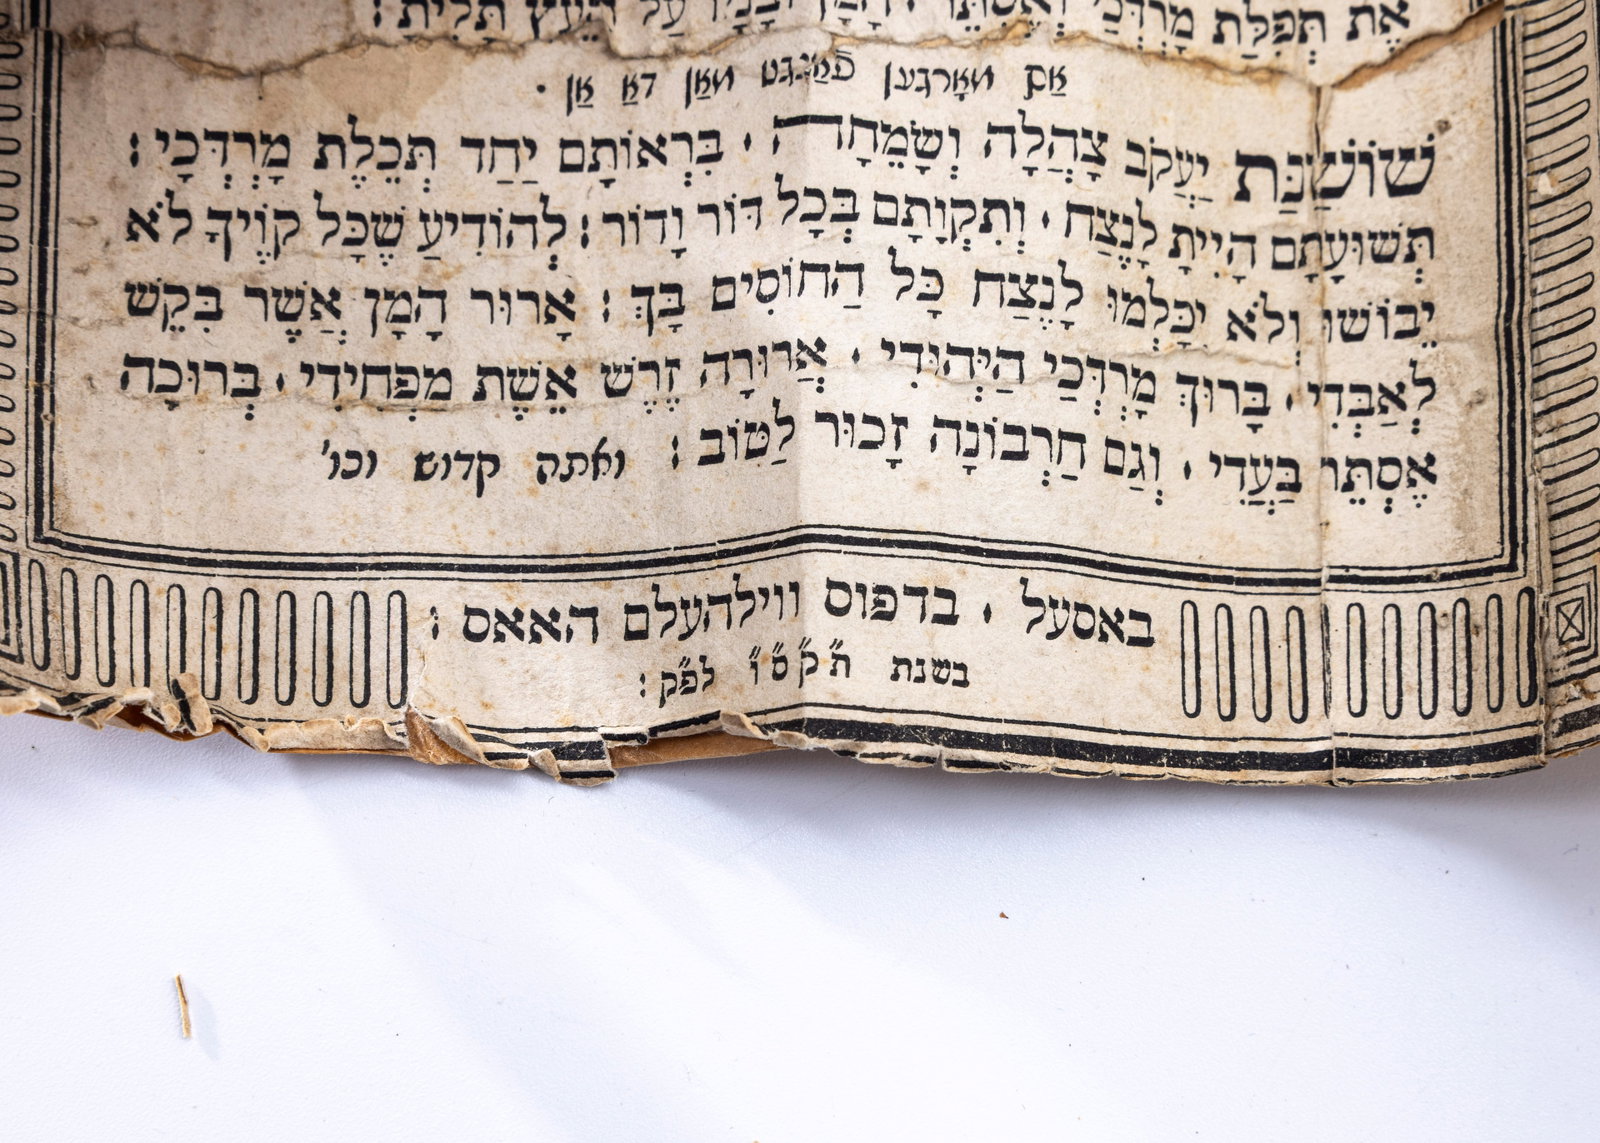 אֶת תְּפִלַּת מָרְדְּכַי וְאֶסְתֵּר · הָמָן וּבָנָיו עַל הָעֵץ תָּלִיתָ :
אַם מאָרגען פֿאַנגט מאַן דאַ אַן ·
שׁוֹשַׁנַּת יַעֲקֹב צָהֲלָה וְשָׂמֵחָה · בִּרְאוֹתָם יַחַד תְּכֵלֶת מָרְדְּכָי :
תְּשׁוּעָתָם הָיִיתָ לָנֶצַח · וְתִקְוָתָם בְּכָל דּוֹר וָדוֹר : לְהוֹדִיעַ שֶׁכָּל קוֹיֶךָ לֹא
יֵבוֹשׁוּ וְלֹא יִכָּלְמוּ לָנֶצַח כָּל הַחוֹסִים בָּךְ : אָרוּר הָמָן אֲשֶׁר בִּקֵשׁ
לְאַבְּדִי · בָּרוּךְ מָרְדְּכַי הַיְּהוּדִי · אֲרוּרָה זֶרֶשׁ אֵשֶׁת מַפְחִידִי · בְּרוּכָה
אֶסְתֵּר בַּעֲדִי · וְגַם חַרְבוֹנָה זָכוּר לַטּוֹב : ואתה קדוש וכו'
באסעל · בדפוס ווילהעלם האאס :
בשנת ת״ק״ס״ו לפ״ק :